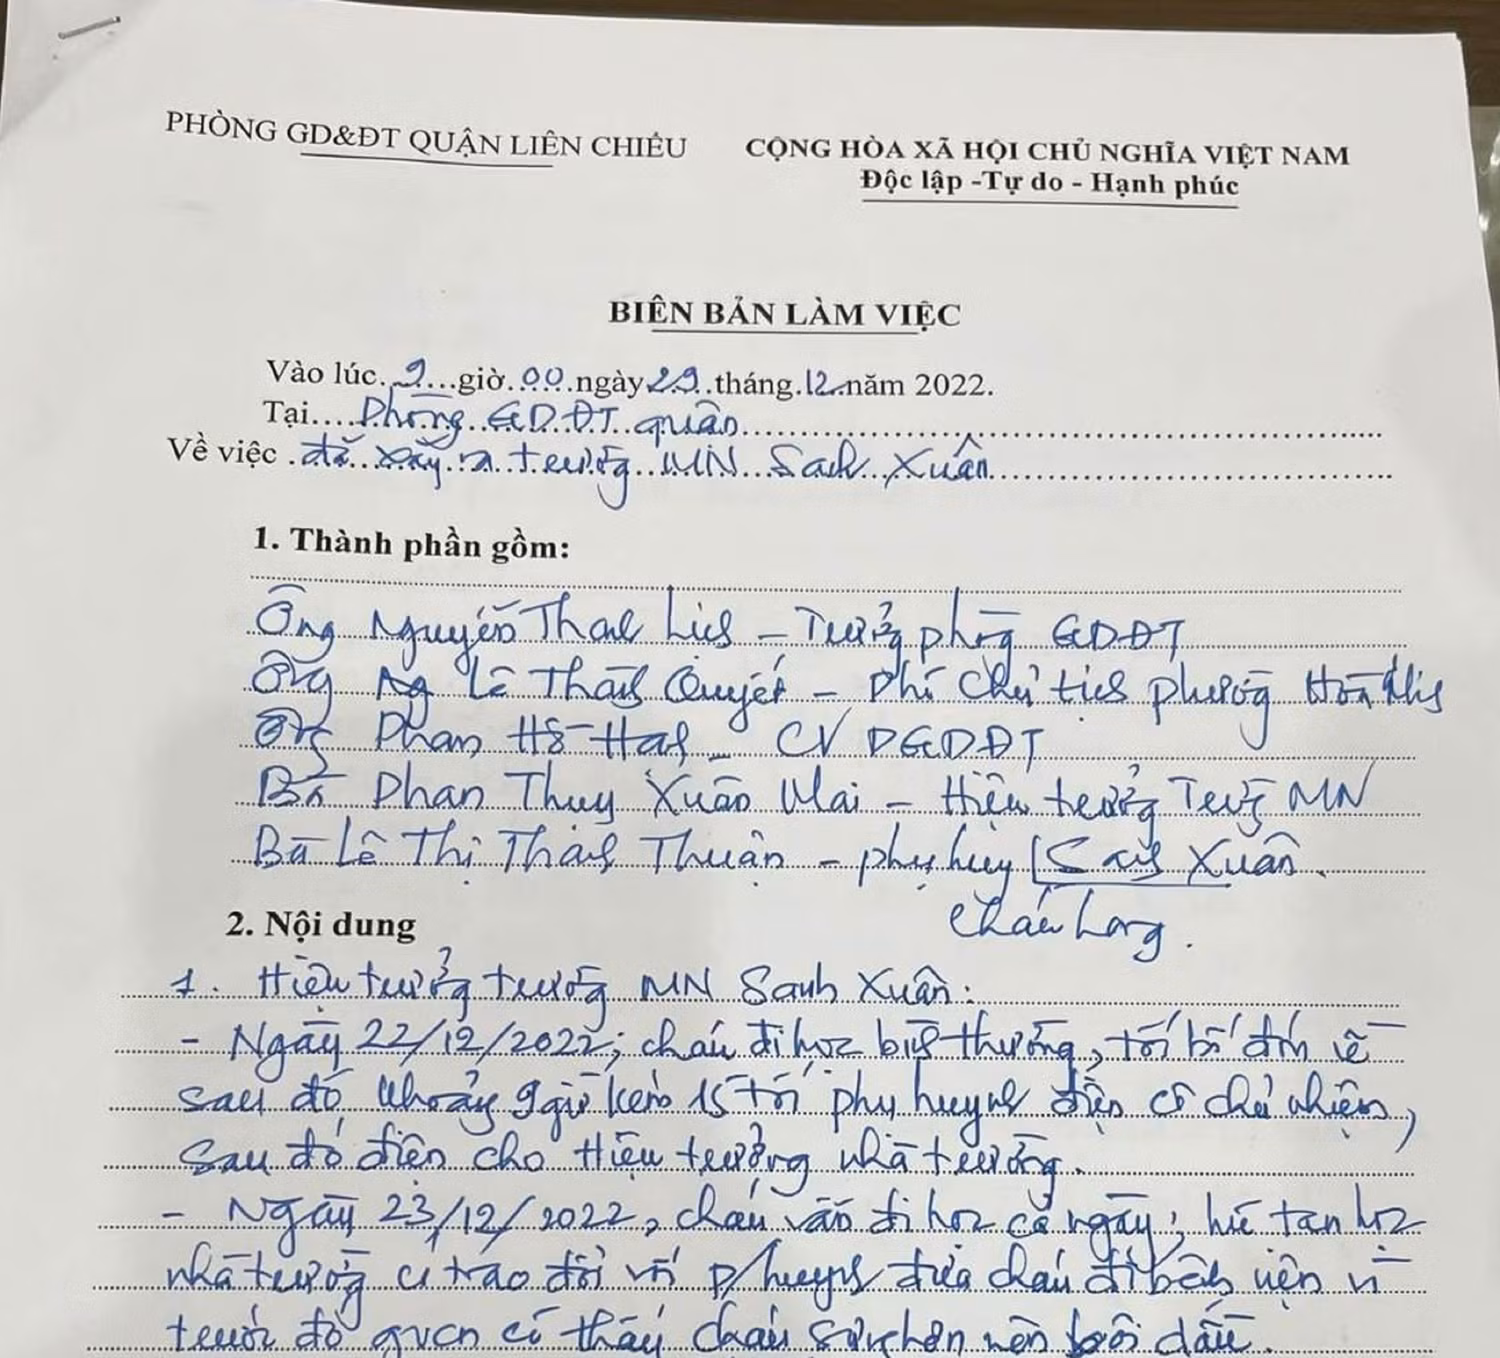 PHÒNG GD&ĐT QUẬN LIÊN CHIỂU
CỘNG HÒA XÃ HỘI CHỦ NGHĨA VIỆT NAM
Độc lập -Tự do - Hạnh phúc
BIÊN BẢN LÀM VIỆC
Vào lúc. 9...giờ.00.ngày 29..tháng.12..năm 2022.
Tại....Phòng GDĐT quận
Về việc .đã xảy ra trường MN Sanh Xuân
1. Thành phần gồm:
Ông Nguyễn Thanh Lịch - Trưởng phòng GDĐT
Ông Ng Lê Thanh Quyết - Phó Chủ tịch phường Hòa Minh
Ông Phan Hồ Hal - CV PGDĐT
Bà Phan Thuỵ Xuân Mai - Hiệu trưởng Trường MN
Bà Lê Thị Thanh Thuận - phụ huynh Sanh Xuân.
cháu Long.
2. Nội dung
1. Hiệu trưởng trường MN Sanh Xuân:
- Ngày 22/12/2022; cháu đi học bình thường, tối bố đón về
sau đó khoảng 9 giờ kém 15 tối phụ huynh điện cô chủ nhiệm,
sau đó điện cho Hiệu trưởng nhà trường.
- Ngày 23/12/2022, cháu vẫn đi học cả ngày, hết tan học
nhà trường có trao đổi với p/huynh đưa cháu đi bệnh viện vì
trước đó gvcn có thấy cháu sưng nên bôi dầu.